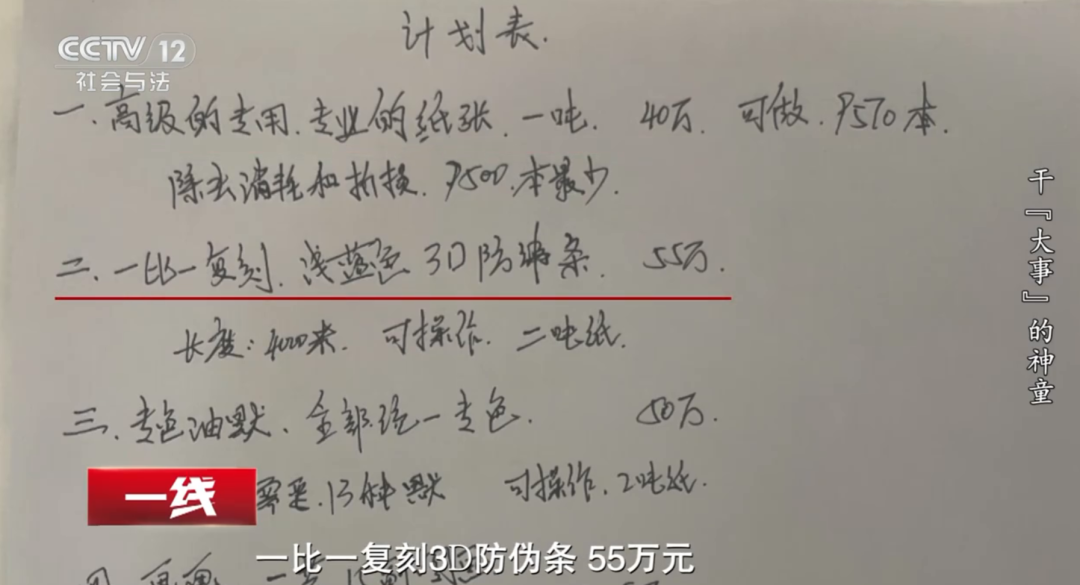 计划表.
CCTV 12
社会与法
一、高级的专用、专业的纸张、一吨. 40万. 可做、9570本.
除去消耗和折损、9500、本最少.
二、一比一复刻、浅蓝色 3D防缔条. 55万.
长度:4000米. 可操作. 二吨纸.
三、专色油默、全部统一专色. 50万.
13种默 可操作、2吨纸.
一线
一比一复刻3D防伪条 55万元
干『大事』的神童